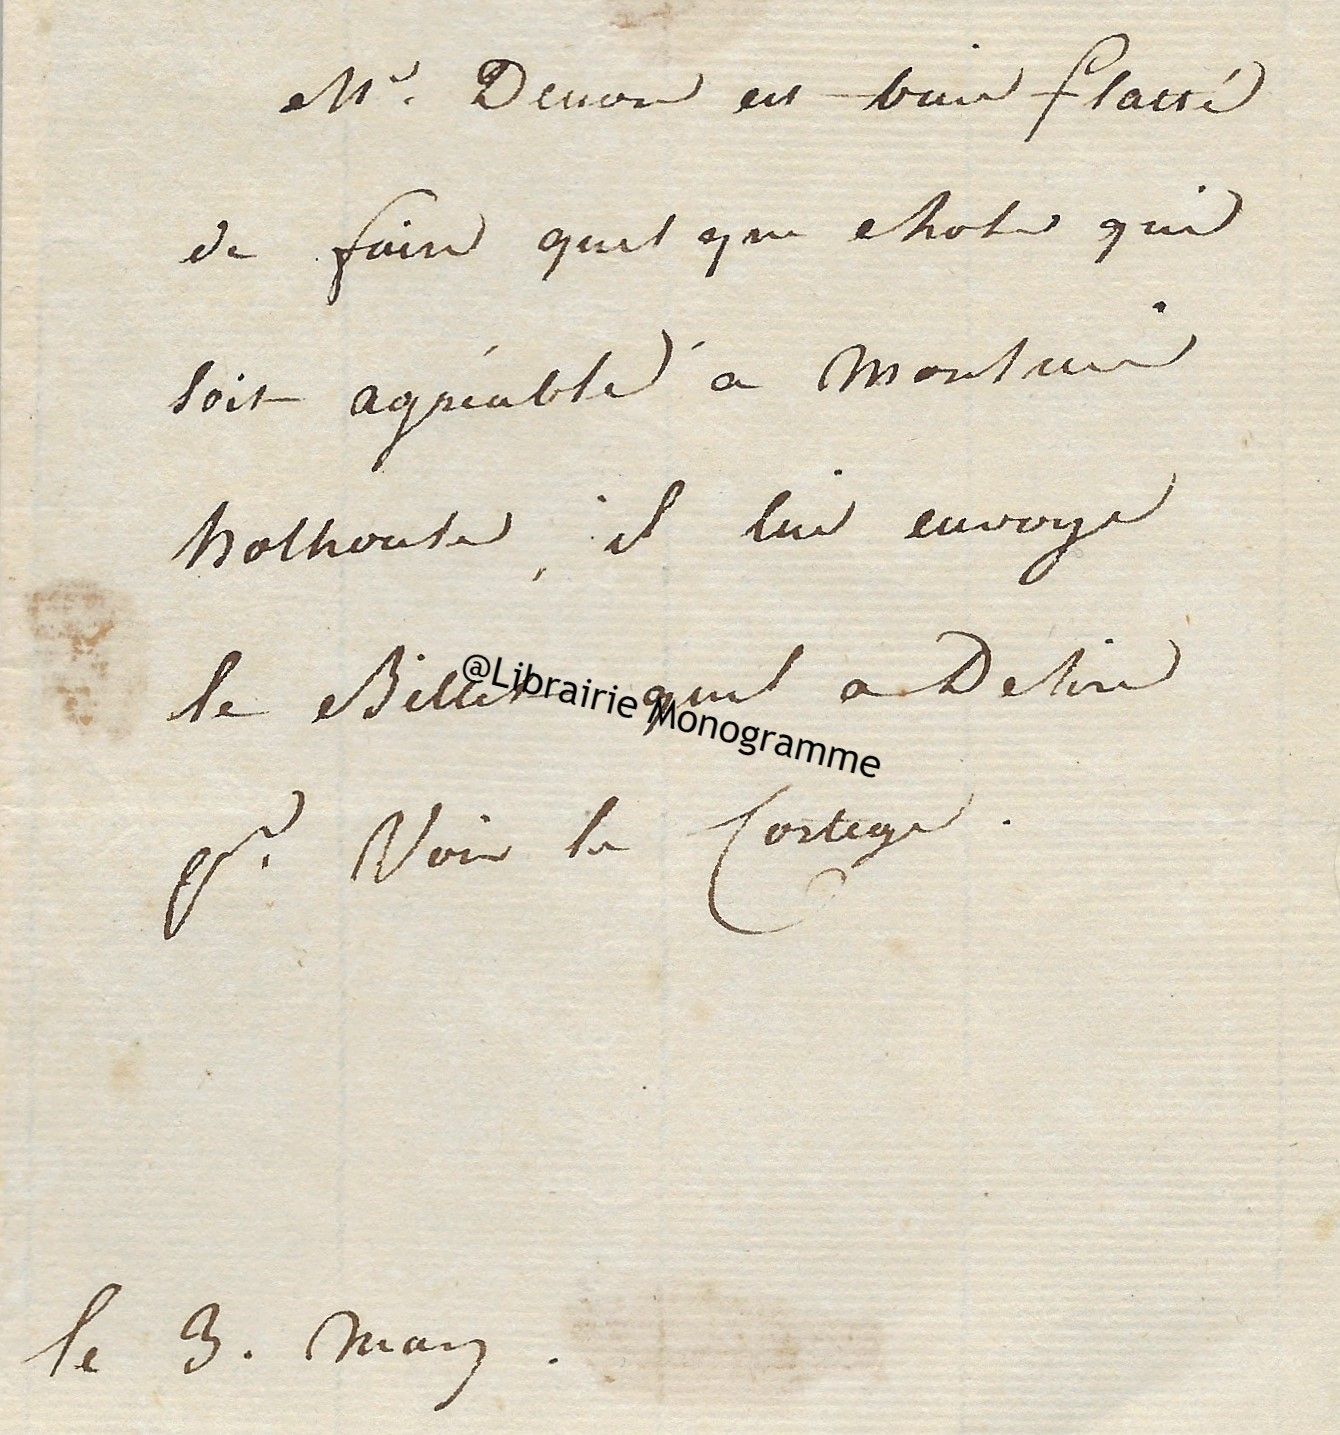 Mr. Denon est bien flatté
de faire quel que chose qui
soit agréable à Monsieur
il lui envoye
le Billet quil a Desiré
pr. Voir le Cortege.
le 3. May.
@Librairie Monogramme